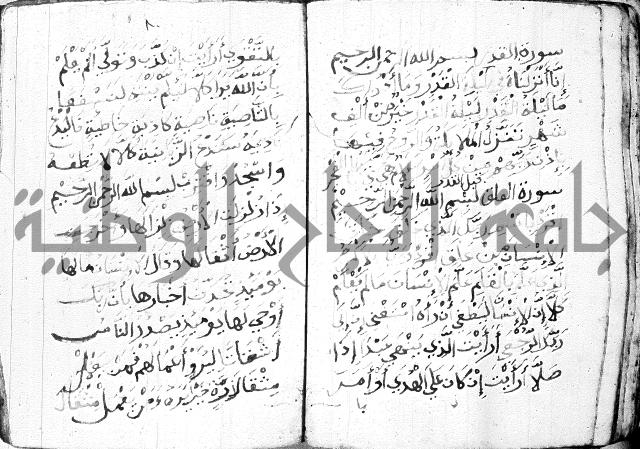 سورة القدر بسم الله الرحمن الرحيم
إنا أنزلناه في ليلة القدر وما أدراك
ما ليلة القدر ليلة القدر خير من ألف
شهر تنزل الملا والروح فيها
بإذن ربهم
سورة العلق بسم الله الرحمن الرحيم
ربك الذي
الإنسان من علق
الذي علم بالقلم علم الإنسان ما لم يعلم
كلا إن الإنسان ليطغى أن رآه استغنى إن إلى
ربك الرجعى أرأيت الذي ينهى عبدا إذا
صلا أرأيت إن كان على الهدى أو أمر
بالتقوى أرأيت إن كذب وتولى ألم يعلم
بأن الله يرا كلا لئن لم ينته لنسفعا
بالناصية ناصية كاذبة خاطية فاليدع
سندع الزبانية كلا لا تطعه
واسجد واقترب بسم الله الرحمن الرحيم
إذا زلزلت الأرض زلزالها وأخرجت
الأرض أثقالها وقال الإنسان مالها
يوميذ تحدث أخبارها بأن ربك
أوحى لها يوميذ يصدر الناس
أشتاتا ليروا أعمالهم فمن يعمل
مثقال ذرة خيرا يره ومن يعمل مثقال
جامعة النجاح الوطنية